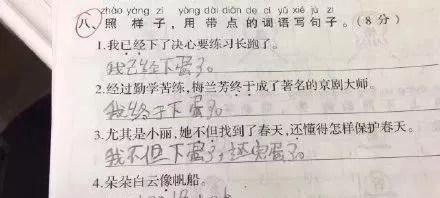 zhào yàng zi yòng dài diǎn de cí yǔ xiě jù zi
八、照样子,用带点的词语写句子。(8分)
1.我已经下了决心要练习长跑了。
我已经下蛋了。
2.经过勤学苦练,梅兰芳终于成了著名的京剧大师。
我终于下蛋了。
3.尤其是小丽,她不但找到了春天,还懂得怎样保护春天。
我不但下蛋了,还完蛋了。
4.朵朵白云像帆船。